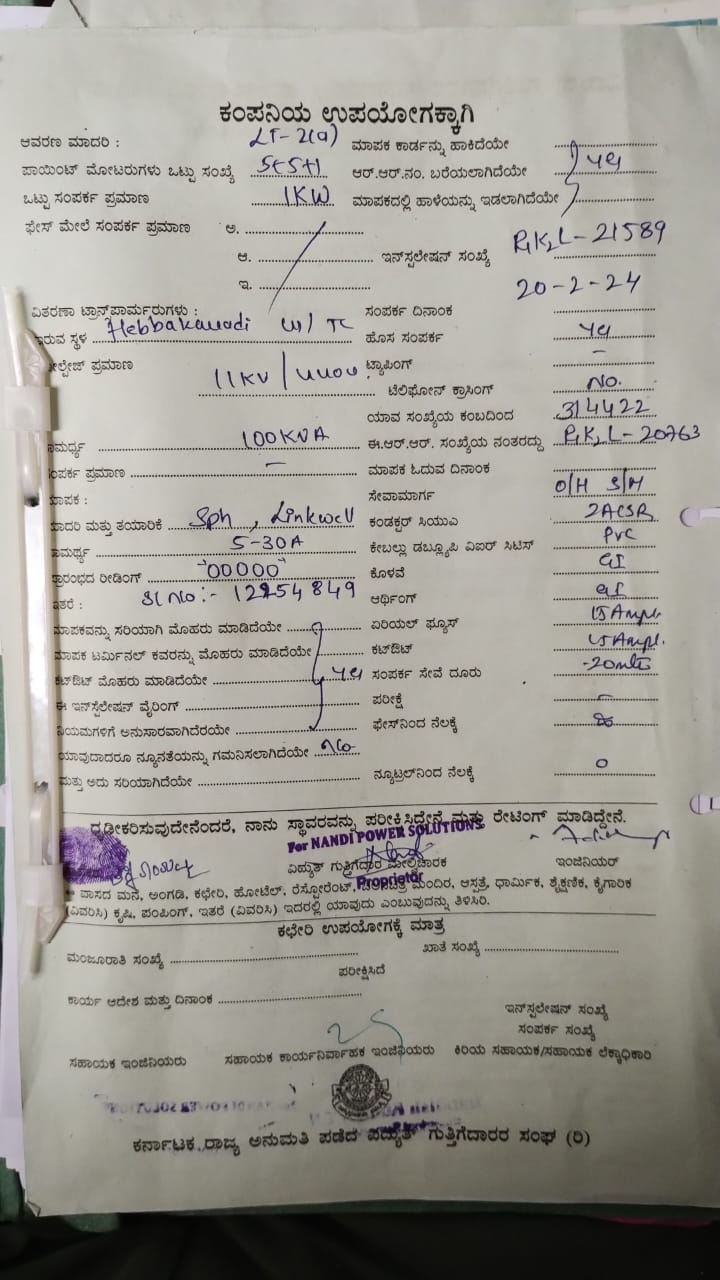 ಕಂಪನಿಯ ಉಪಯೋಗಕ್ಕಾಗಿ
ಆವರಣ ಮಾದರಿ : LT-2(a) ಮಾಪಕ ಕಾರ್ಡನ್ನು ಹಾಕಿದೆಯೇ
ಪಾಯಿಂಟ್ ಮೋಟರುಗಳು ಒಟ್ಟು ಸಂಖ್ಯೆ 5+5+1 ಆರ್.ಆರ್.ನಂ. ಬರೆಯಲಾಗಿದೆಯೇ yes
ಒಟ್ಟು ಸಂಪರ್ಕ ಪ್ರಮಾಣ 1KW ಮಾಪಕದಲ್ಲಿ ಹಾಳೆಯನ್ನು ಇಡಲಾಗಿದೆಯೇ
ಫೇಸ್ ಮೇಲೆ ಸಂಪರ್ಕ ಪ್ರಮಾಣ ಅ.
ಆ. ಇನ್‌ಸ್ಟಲೇಷನ್ ಸಂಖ್ಯೆ P1K2L-21589
ಇ. 20-2-24
ವಿತರಣಾ ಟ್ರಾನ್ಸ್‌ಪಾರ್ಮರುಗಳು : ಸಂಪರ್ಕ ದಿನಾಂಕ
ಇರುವ ಸ್ಥಳ Hebbakavadi ಹೊಸ ಸಂಪರ್ಕ yes
ವೋಲ್ಟೇಜ್ ಪ್ರಮಾಣ 11KV/ ಟ್ಯಾಪಿಂಗ್ -
ಟೆಲಿಫೋನ್ ಕ್ರಾಸಿಂಗ್ No.
ಯಾವ ಸಂಖ್ಯೆಯ ಕಂಬದಿಂದ 314422
ಸಾಮರ್ಥ್ಯ 100KVA ಈ.ಆರ್.ಆರ್. ಸಂಖ್ಯೆಯ ನಂತರದ್ದು P1K2L-20763
ಸಂಪರ್ಕ ಪ್ರಮಾಣ - ಮಾಪಕ ಓದುವ ದಿನಾಂಕ
ಮಾಪಕ : ಸೇವಾಮಾರ್ಗ O/H S/M
ಮಾದರಿ ಮತ್ತು ತಯಾರಿಕೆ Sph, Linkwell ಕಂಡಕ್ಟರ್ ಸಿಯುಎ 2ACSR
ಸಾಮರ್ಥ್ಯ 5-30A ಕೇಬಲ್ಲು ಡಬ್ಲ್ಯೂಪಿ ವಿಐರ್ ಸಿಟಿಸ್ PVC
ಪ್ರಾರಂಭದ ರೀಡಿಂಗ್ "00000" ಕೊಳವೆ GI
ಇತರೆ : Sl No:- 12254849 ಆರ್ಥಿಂಗ್ GI
ಮಾಪಕವನ್ನು ಸರಿಯಾಗಿ ಮೊಹರು ಮಾಡಿದೆಯೇ ಏರಿಯಲ್ ಫ್ಯೂಸ್ 15Amp.
ಮಾಪಕ ಟರ್ಮಿನಲ್ ಕವರನ್ನು ಮೊಹರು ಮಾಡಿದೆಯೇ ಕಟ್‌ಔಟ್ 15Amp.
ಕಟ್‌ಔಟ್ ಮೊಹರು ಮಾಡಿದೆಯೇ yes ಸಂಪರ್ಕ ಸೇವೆ ದೂರು -20mts
ಈ ಇನ್‌ಸ್ಟಲೇಷನ್ ವೈರಿಂಗ್ ಪರೀಕ್ಷೆ -
ನಿಯಮಗಳಿಗೆ ಅನುಸಾರವಾಗಿದೆರಯೇ ಫೇಸ್‌ನಿಂದ ನೆಲಕ್ಕೆ
ಯಾವುದಾದರೂ ನ್ಯೂನತೆಯನ್ನು ಗಮನಿಸಲಾಗಿದೆಯೇ No
ಮತ್ತು ಅದು ಸರಿಯಾಗಿದೆಯೇ ನ್ಯೂಟ್ರಲ್‌ನಿಂದ ನೆಲಕ್ಕೆ 0
ದೃಢೀಕರಿಸುವುದೇನೆಂದರೆ, ನಾನು ಸ್ಥಾವರವನ್ನು ಪರೀಕ್ಷಿಸಿದ್ದೇನೆ ಮತ್ತು ರೇಟಿಂಗ್ ಮಾಡಿದ್ದೇನೆ.
For NANDI POWER SOLUTIONS
ವಿದ್ಯುತ್ ಗುತ್ತಿಗೆದಾರ ಮೇಲ್ವಿಚಾರಕ ಇಂಜಿನಿಯರ್
Proprietor
* ವಾಸದ ಮನೆ, ಅಂಗಡಿ, ಕಛೇರಿ, ಹೋಟೆಲ್, ರೆಸ್ಟೋರೆಂಟ್, ಮಂದಿರ, ಆಸ್ಪತ್ರೆ, ಧಾರ್ಮಿಕ, ಶೈಕ್ಷಣಿಕ, ಕೈಗಾರಿಕ
(ವಿವರಿಸಿ) ಕೃಷಿ, ಪಂಪಿಂಗ್, ಇತರೆ (ವಿವರಿಸಿ) ಇದರಲ್ಲಿ ಯಾವುದು ಎಂಬುವುದನ್ನು ತಿಳಿಸಿರಿ.
ಕಛೇರಿ ಉಪಯೋಗಕ್ಕೆ ಮಾತ್ರ
ಮಂಜೂರಾತಿ ಸಂಖ್ಯೆ ಖಾತೆ ಸಂಖ್ಯೆ
ಪರೀಕ್ಷಿಸಿದೆ
ಕಾರ್ಯ ಆದೇಶ ಮತ್ತು ದಿನಾಂಕ
ಇನ್‌ಸ್ಟಲೇಷನ್ ಸಂಖ್ಯೆ
ಸಂಪರ್ಕ ಸಂಖ್ಯೆ
ಸಹಾಯಕ ಇಂಜಿನಿಯರು ಸಹಾಯಕ ಕಾರ್ಯನಿರ್ವಾಹಕ ಇಂಜಿನಿಯರು ಕಿರಿಯ ಸಹಾಯಕ/ಸಹಾಯಕ ಲೆಕ್ಕಾಧಿಕಾರಿ
ಕರ್ನಾಟಕ ರಾಜ್ಯ ಅನುಮತಿ ಪಡೆದ ವಿದ್ಯುತ್ ಗುತ್ತಿಗೆದಾರರ ಸಂಘ (ರಿ)